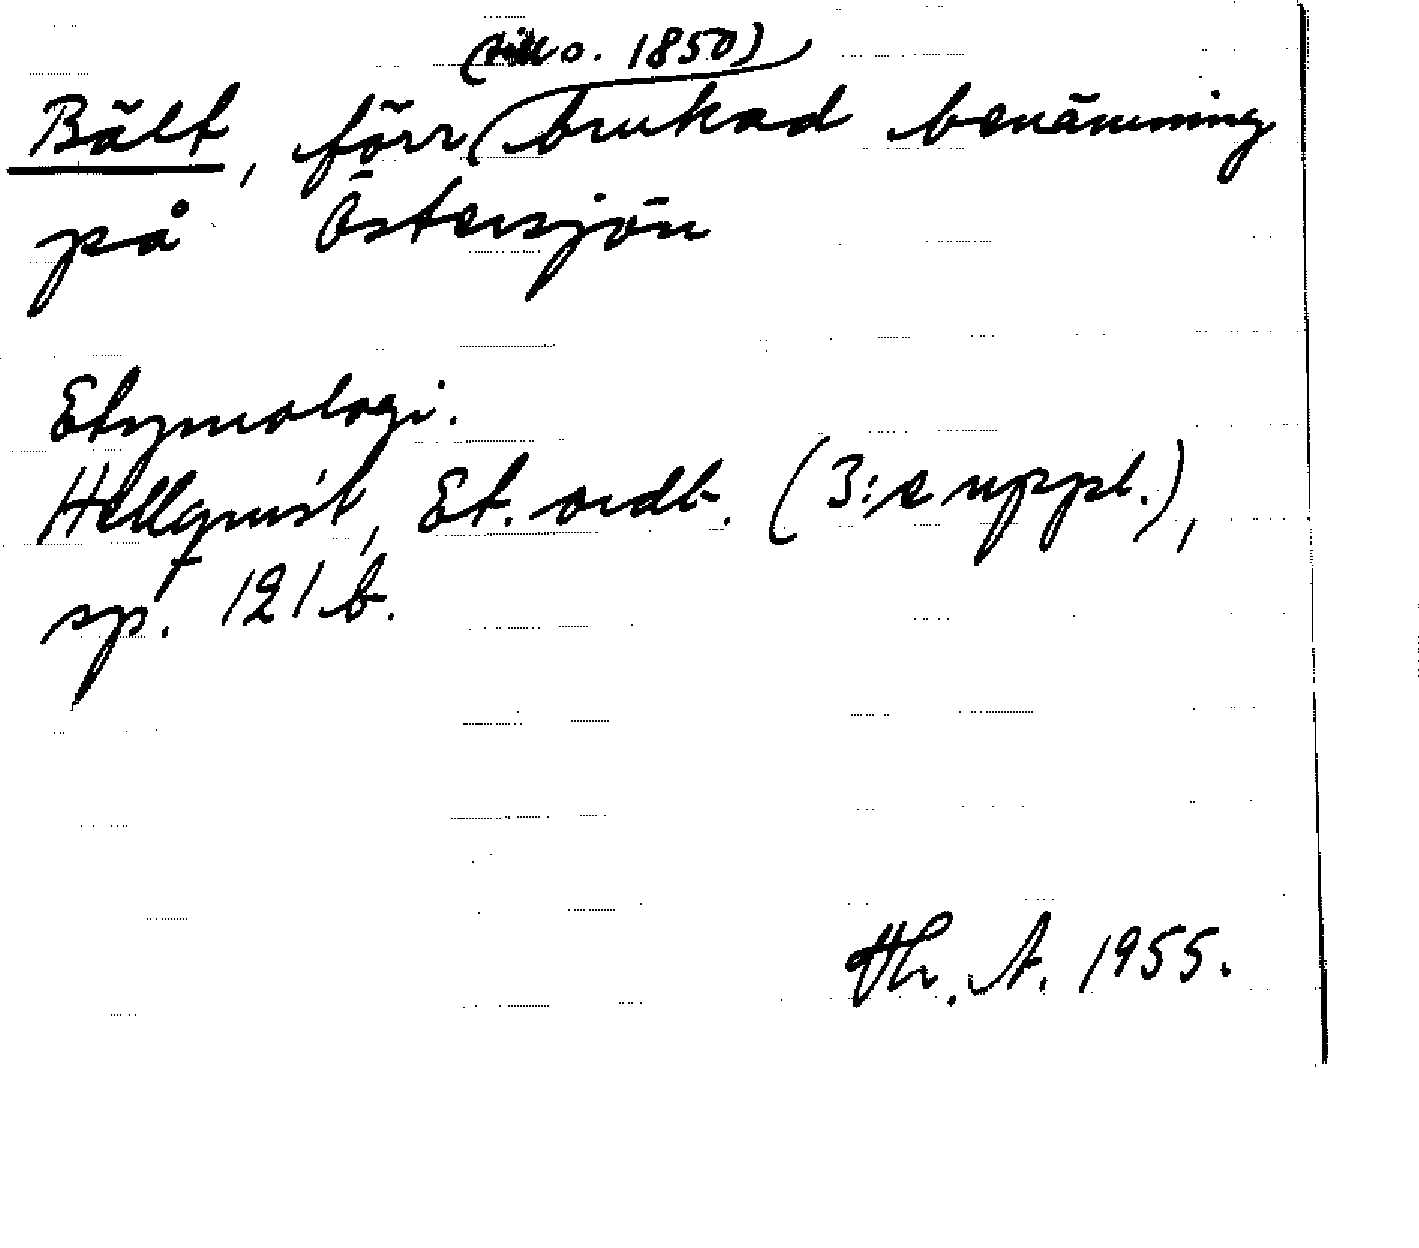 (till o. 1850)
Bält, förr brukad benämning
på Östersjön
Etymologi.
Hellquist, Et. ordb. (3:e uppl.),
sp. 121 b.
Th. A. 1955.